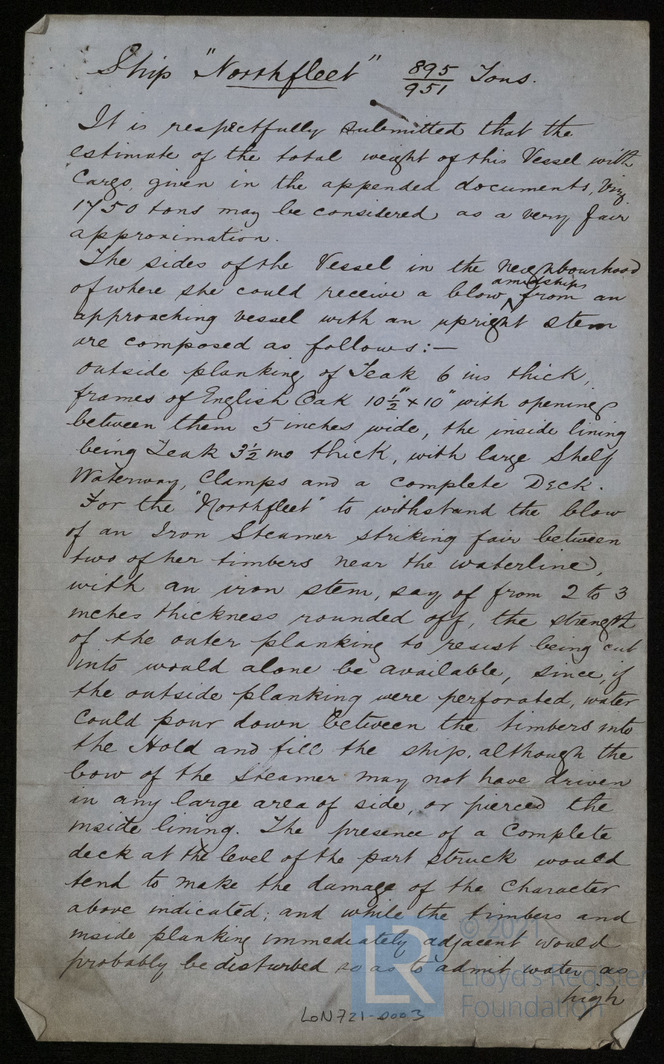 Ship "Northfleet" 895/951 Tons.
It is respectfully submitted that the
estimate of the total weight of this Vessel with
Cargo, given in the appended documents, viz,
1750 tons may be considered as a very fair
approximation.
The sides of the Vessel in the neighbourhood
amidships
of where she could receive a blow from an
approaching vessel with an upright stem
are composed as follows:—
Outside planking of Teak 6 ins thick,
frames of English Oak 10½" x 10" with openings
between them 5 inches wide, the inside lining
being Teak 3½ ins thick, with large Shelf
Waterway, Clamps and a complete Deck.
For the "Northfleet" to withstand the blow
of an Iron Steamer striking fair between
two of her timbers near the waterline,
with an iron stem, say of from 2 to 3
inches thickness rounded off, the strength
of the outer planking to resist being cut
into would alone be available, since, if
the outside planking were perforated, water
could pour down between the timbers into
the Hold and fill the ship, although the
bow of the steamer may not have driven
in any large area of side, or pierced the
inside lining. The presence of a Complete
deck at the level of the part struck would
tend to make the damage of the Character
above indicated; and while the timbers and
inside planking immediately adjacent would
probably be disturbed so as to admit water as
high
LoN721-0003
LR
© 2021
Lloyd's Register
Foundation